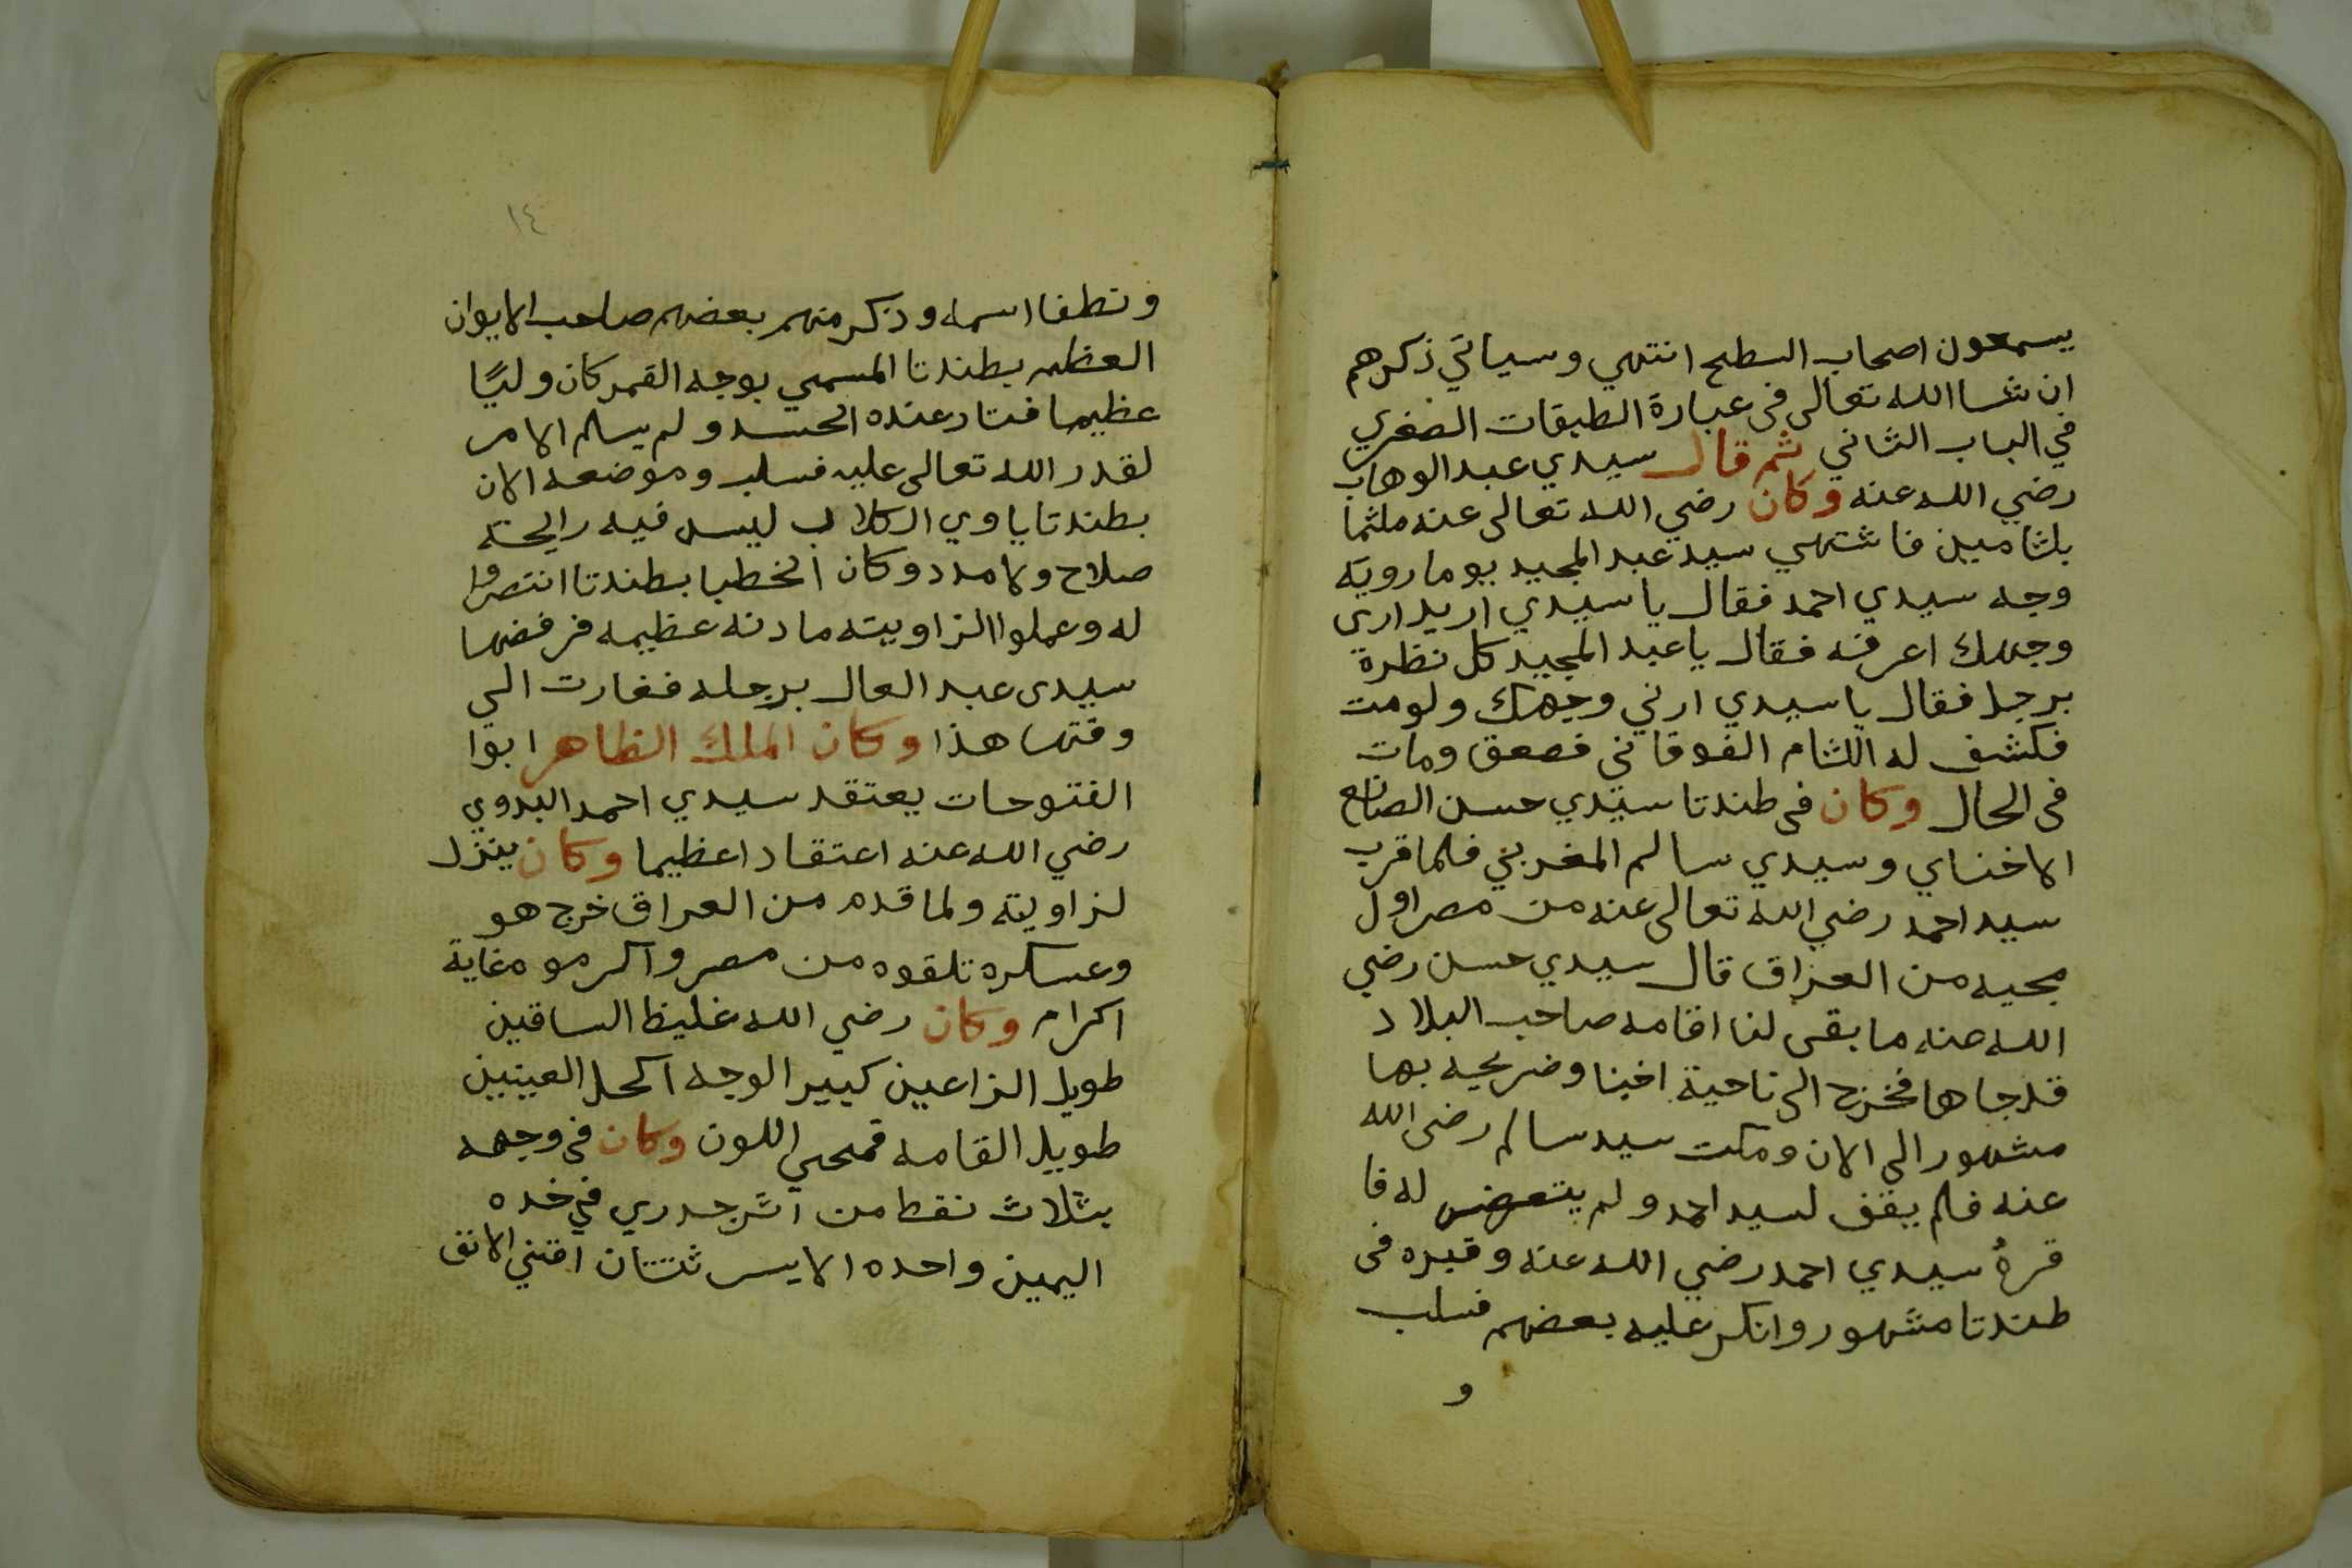 يسمعون اصحاب السطح انتهي وسياتي ذكرهم
ان شا الله تعالى فى عبارة الطبقات الصغري
في الباب الثاني ثم قال سيدي عبد الوهاب
رضي الله عنه وكان رضي الله تعالى عنه ملثما
بلثامين فاشتهي سيد عبد المجيد يوما روية
وجه سيدي احمد فقال يا سيدي اريد ارى
وجهك اعرفه فقال يا عبد المجيد كل نظرة
برجل فقال يا سيدي ارني وجهك ولو مت
فكشف له اللثام الفوقاني فصعق ومات
فى الحال وكان فى طندتا سيدي حسن الصانع
الاخناي وسيدي سالم المغربي فلما قرب
سيد احمد رضي الله تعالى عنه من مصر اول
مجيه من العراق قال سيدي حسن رضي
الله عنه ما بقى لنا اقامه صاحب البلاد
قد جاها فخرج الى ناحية اخنا وضريحه بها
مشهور الى الان ومكت سيد سالم رضى الله
عنه فلم يقف لسيد احمد ولم يتعرض له فا
قره سيدي احمد رضي الله عنه وقبره فى
طندتا مشهور وانكر عليه بعضهم فسلب
و
١٤
ونطفا اسمه وذكر منهم بعضهم صاحب الايوان
العظيم بطندتا المسمي بوجه القمر كان وليًا
عظيما فتار عنده الحسد ولم يسلم الامر
لقدر الله تعالى عليه فسلب وموضعه الان
بطندتا ياوي الكلاب ليس فيه رايحة
صلاح ولا مدد وكان الخطبا بطندتا انتصروا
له وعملوا الزاويته مادنه عظيمه فرفضها
سيدى عبد العال برجله فغارت الي
وقتها هذا وكان الملك الظاهر ابوا
الفتوحات يعتقد سيدي احمد البدوي
رضي الله عنه اعتقادا عظيما وكان ينزل
لزاويته ولما قدم من العراق خرج هو
وعسكره تلقوه من مصر واكرموه غاية
اكرام وكان رضي الله غليظ الساقين
طويل الزراعين كبير الوجه اكحل العينين
طويل القامه قمحي اللون وكان فى وجهه
بثلاث نقط من اثر جدري في خده
اليمين واحده الايسر ثنتان اقني الانف